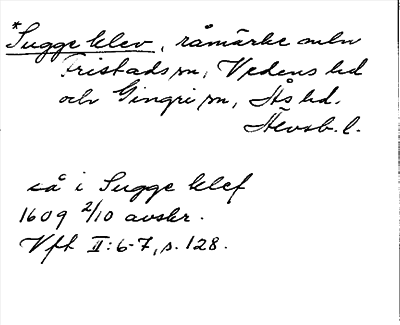 *Sugge klev, råmärke mln
Fristads sn, Vedens hd
och Gingri sn, Ås hd.
Älvsb. l.
så i Sugge klef
1609 2/10 avskr.
Vft II:6-7, s. 128.